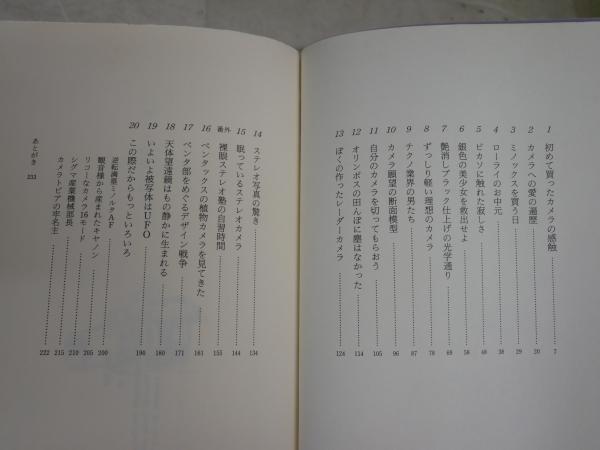 1 初めて買ったカメラの感触 7
2 カメラへの愛の遍歴 20
3 ミノックスを買う日 29
4 ローライのお中元 38
5 ピカソに触れた寂しさ 48
6 銀色の美少女を救出せよ 58
7 艶消しブラック仕上げの光学通り 69
8 ずっしり軽い理想のカメラ 78
9 テクノ業界の男たち 87
10 カメラ願望の断面模型 96
11 自分のカメラを切ってもらおう 105
12 オリンポスの田んぼに塵はなかった 114
13 ぼくの作ったレーダーカメラ 124
14 ステレオ写真の驚き 134
15 眠っているステレオカメラ 144
番外 裸眼ステレオ塾の自習時間 155
16 ペンタックスの植物カメラを見てきた 161
17 ペンタ部をめぐるデザイン戦争 171
18 天体望遠鏡はもの静かに生まれる 180
19 いよいよ被写体はUFO 190
20 この際だからもっといろいろ
逆転満塁ミノルタAF 200
観音様から産まれたキヤノン 205
リコーなカメラ16モード 210
シグマ産業機械部長 215
カメラトピアの牢名主 222
あとがき 233